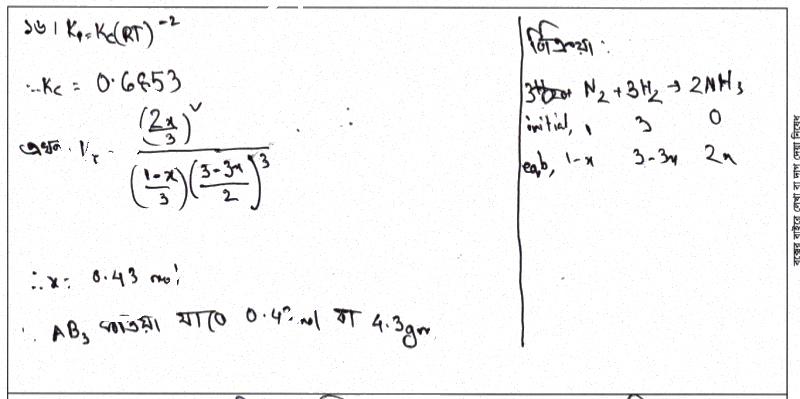 ১৬। Kp = Kc(RT)^-2
∴ Kc = 0.6853
এখন, Kc = (2x/3)^2 / ((1-x)/3) ((3-3x)/2)^3
∴ x = 0.43 mol
∴ AB3 পাওয়া যাবে 0.43 mol বা 4.3 gm
বিক্রিয়া:
N2 + 3H2 → 2NH3
initial, 1 3 0
eqb, 1-x 3-3x 2x
বক্সের বাইরে লেখা বা দাগ দেয়া নিষেধ